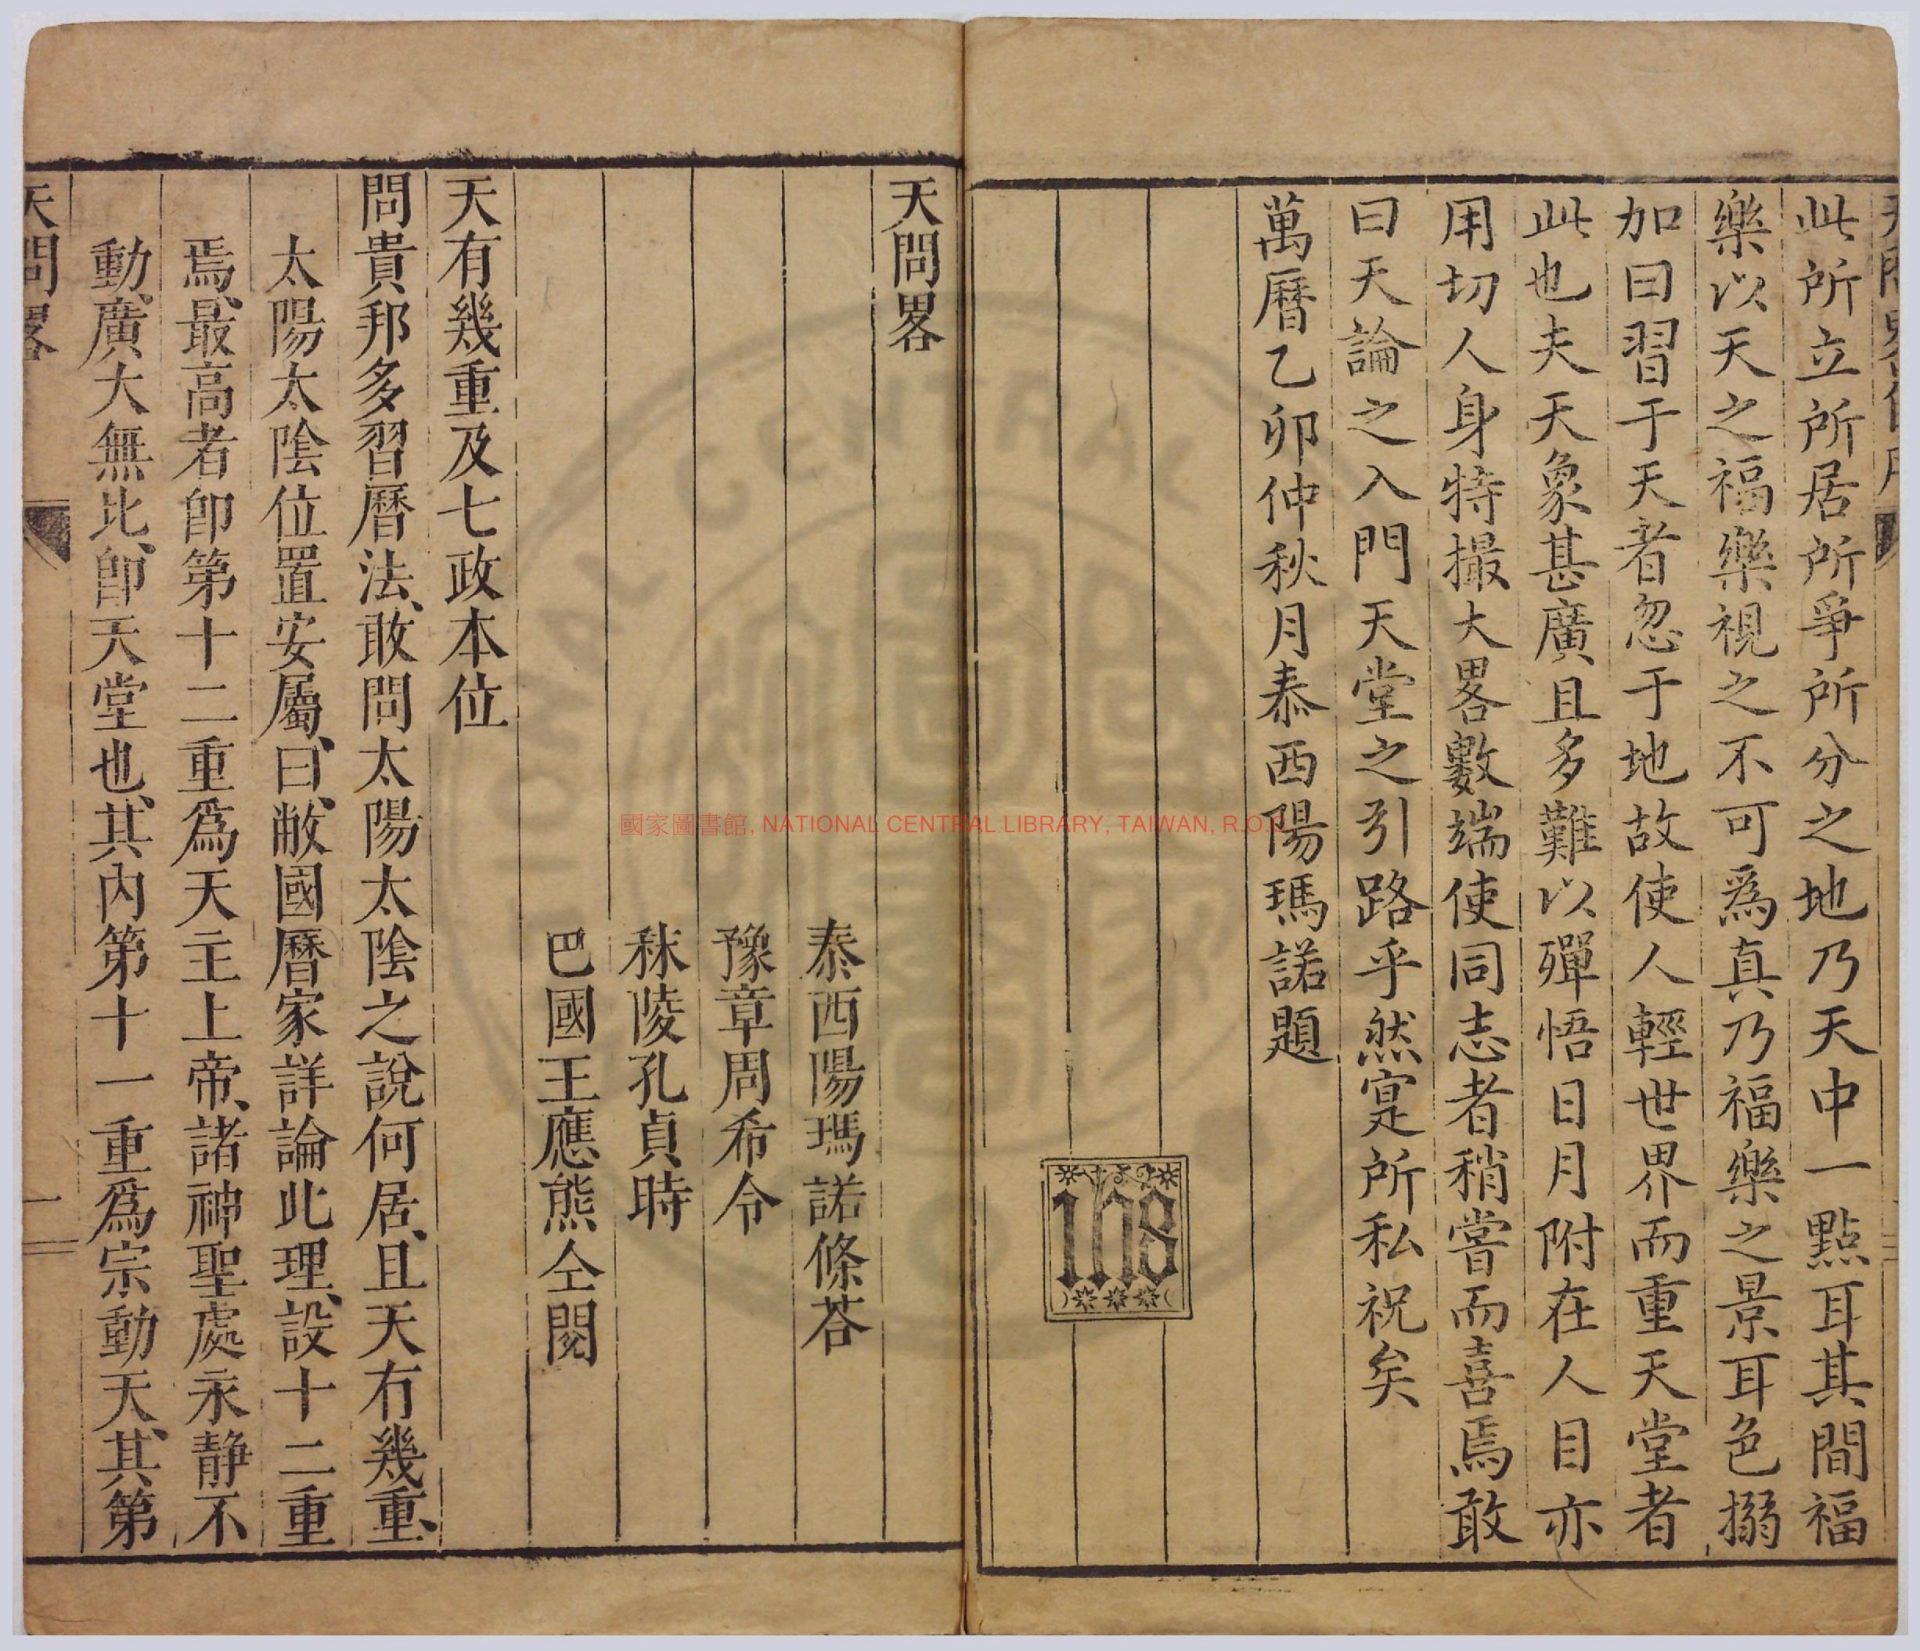 此所立所居所爭所分之地乃天中一點耳其間福
樂以天之福樂視之不可爲真乃福樂之景耳色搦
加曰習于天者忽于地故使人輕世界而重天堂者
此也夫天象甚廣且多難以殫悟日月附在人目亦
用切人身特撮大畧數端使同志者稍嘗而喜焉敢
曰天論之入門天堂之引路乎然寔所私祝矣
萬曆乙卯仲秋月泰西陽瑪諾題
ihs
天問畧
泰西陽瑪諾條荅
豫章周希令
秣陵孔貞時
巴國王應熊仝閱
天有幾重及七政本位
問貴邦多習曆法、敢問太陽太陰之說何居、且天有幾重、
太陽太陰位置安屬、曰、敝國曆家詳論此理、設十二重
焉、最高者卽第十二重爲天主上帝、諸神聖處永靜不
動、廣大無比、卽天堂也、其內第十一重爲宗動天、其第
天問畧
一
國家圖書館, NATIONAL CENTRAL LIBRARY, TAIWAN, R.O.C.